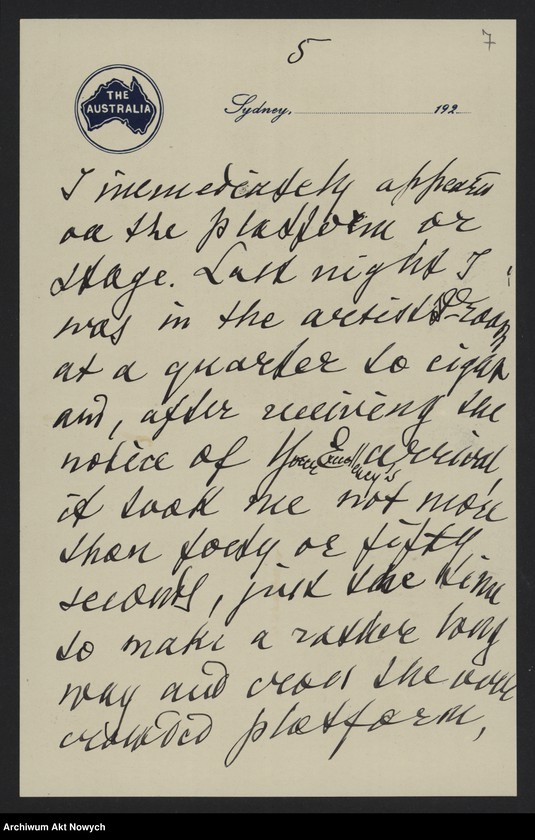 5
7
THE
AUSTRALIA
Sydney, 192
I immediately appear
on the platform or
stage. Last night I
was in the artists' room
at a quarter to eight
and, after receiving the
notice of Your Excellency's arrival,
it took me not more
than forty or fifty
seconds, just the time
to make a rather long
way and cross the over
crowded platform,
Archiwum Akt Nowych